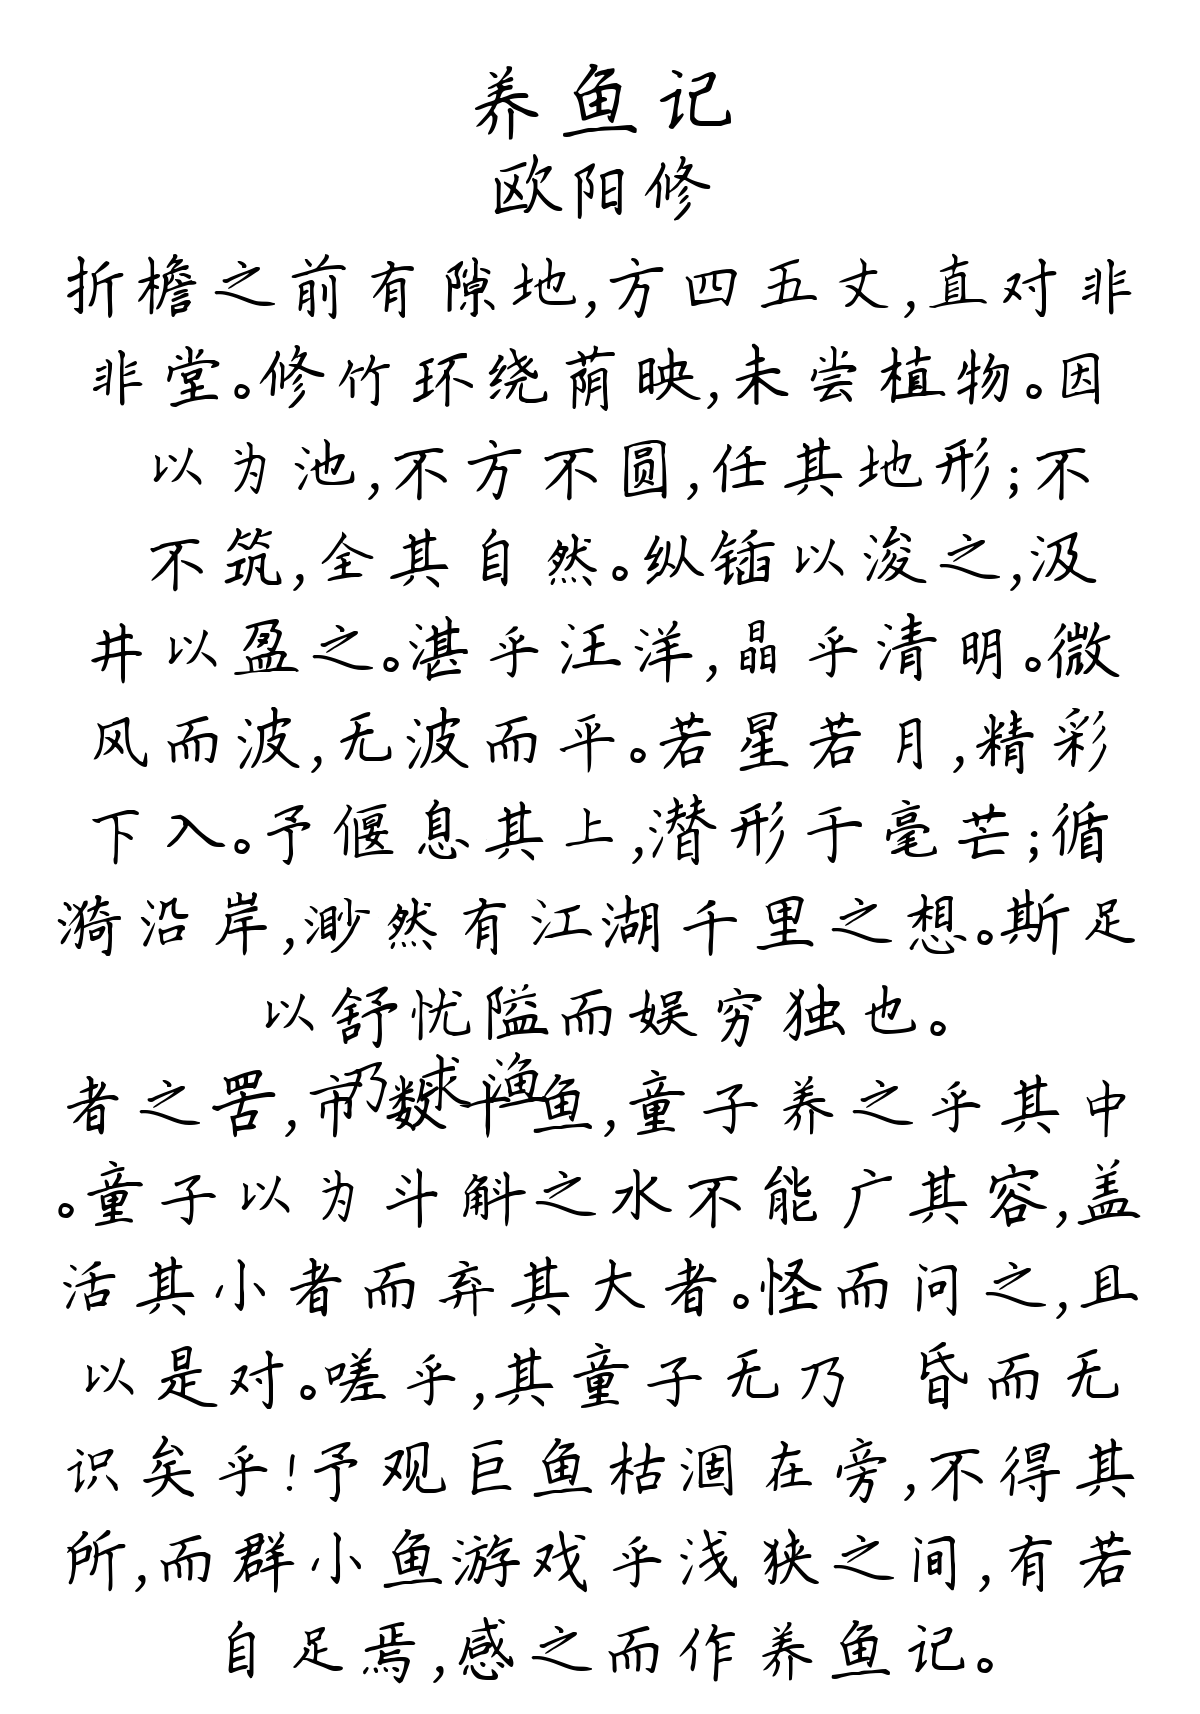 养鱼记
欧阳修
折檐之前有隙地,方四五丈,直对非
非堂。修竹环绕荫映,未尝植物。因
以为池,不方不圆,任其地形;不
不筑,全其自然。纵锸以浚之,汲
井以盈之。湛乎汪洋,晶乎清明。微
风而波,无波而平。若星若月,精彩
下入。予偃息其上,潜形于毫芒;循
漪沿岸,渺然有江湖千里之想。斯足
以舒忧隘而娱穷独也。
乃求渔
者之罟,市数十鱼,童子养之乎其中
。童子以为斗斛之水不能广其容,盖
活其小者而弃其大者。怪而问之,且
以是对。嗟乎,其童子无乃 昏而无
识矣乎!予观巨鱼枯涸在旁,不得其
所,而群小鱼游戏乎浅狭之间,有若
自足焉,感之而作养鱼记。